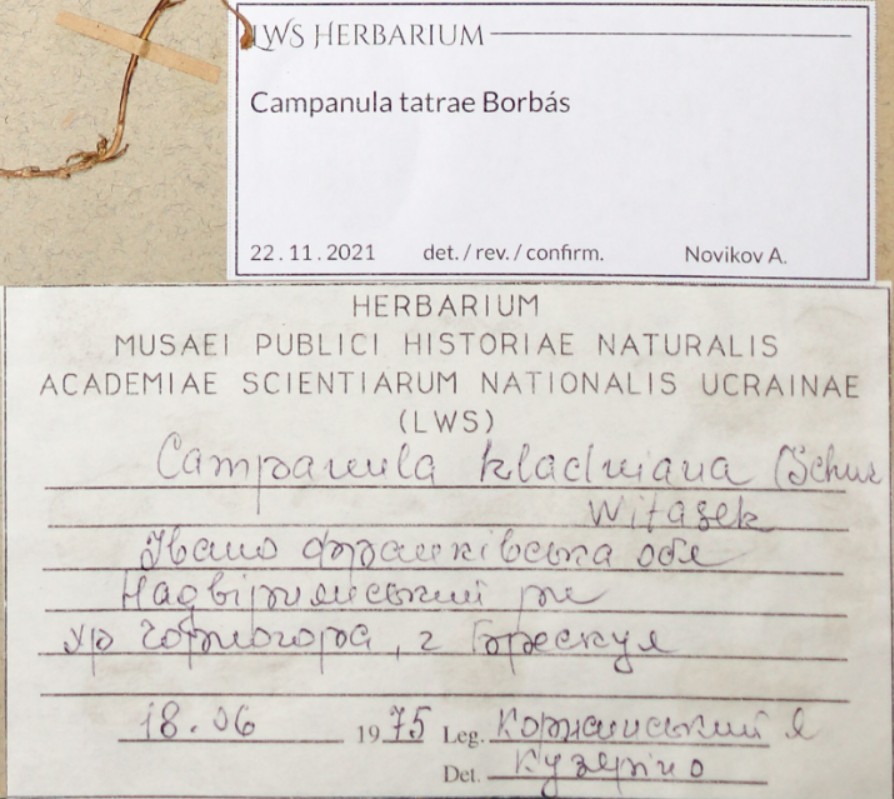 LWS HERBARIUM
Campanula tatrae Borbás
22.11.2021 det./rev./confirm. Novikov A.
HERBARIUM
MUSAEI PUBLICI HISTORIAE NATURALIS
ACADEMIAE SCIENTIARUM NATIONALIS UCRAINAE
(LWS)
Campanula kladniana (Schur
Witasek
Івано Франківська обл
Надвірнянський рн
хр Чорногора, г Брескул
18.06 1975 Leg.
Det.